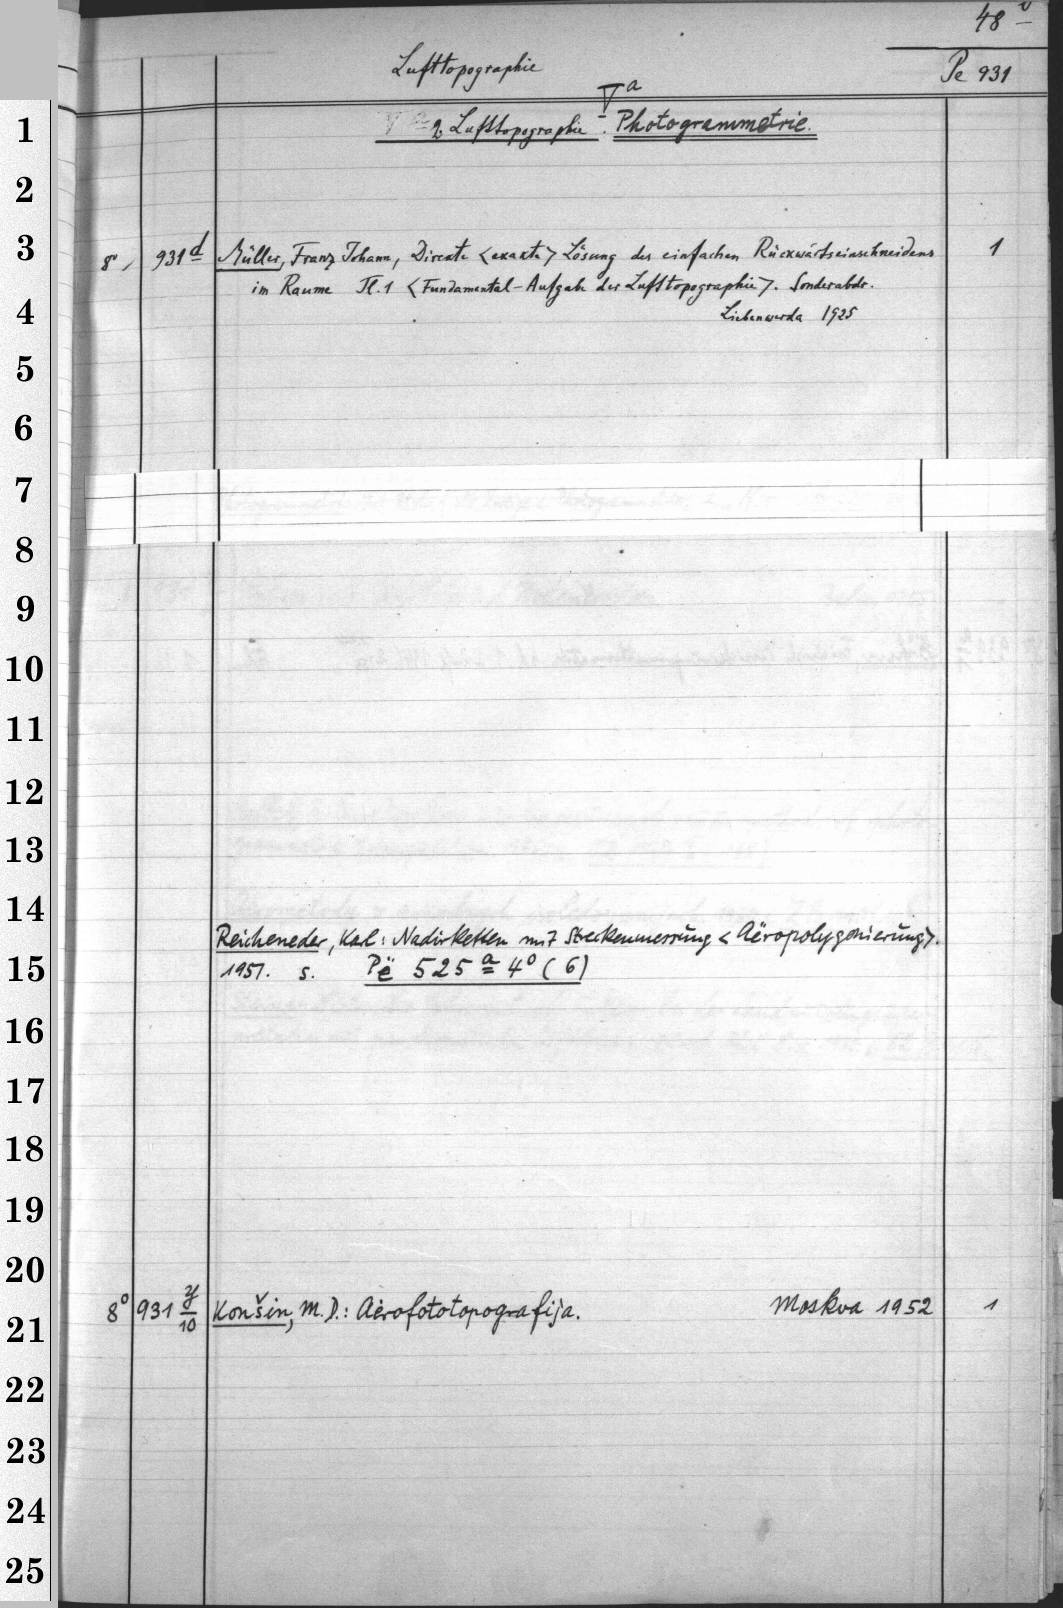 48 v
Lufttopographie
Pe 931
V a
2. Lufttopographie. Photogrammetrie.
8° 931 d Müller, Franz Johann, Direkte <exakte> Lösung des einfachen Rückwärtseinschneidens 1
im Raume Tl. 1 <Fundamental-Aufgabe der Lufttopographie>. Sonderabdr.
Liebenwerda 1925
Reicheneder, Karl: Nadirketten mit Streckenmessung <Aëropolygonierung>.
1951. s. Pë 525 a 4° (6)
8° 931 y/10 Konšin, M.D.: Aėrofototopografija. Moskva 1952 1
1
2
3
4
5
6
7
8
9
10
11
12
13
14
15
16
17
18
19
20
21
22
23
24
25